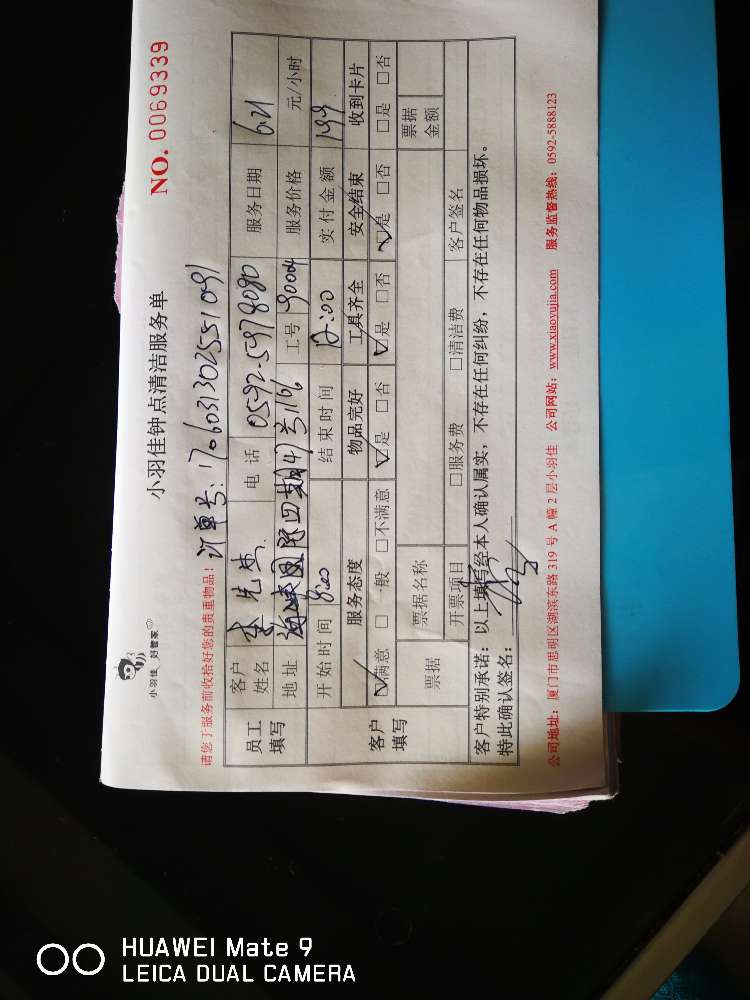 小羽佳 好管家
小羽佳钟点清洁服务单
NO. 0069339
请您于服务前收拾好您的贵重物品！
订单号：
员工填写
客户姓名 李先生 电话 0592-5978080 服务日期 6.21
地址 海峡国际四期47号1106 工号 90004 服务价格 元/小时
开始时间 8:00 结束时间 12:00 实付金额 199
客户填写
服务态度 物品完好 工具齐全 安全结束 收到卡片
☑满意 □一般 □不满意 ☑是 □否 ☑是 □否 ☑是 □否 □是 □否
票据 票据名称 票据金额
开票项目 □服务费 □清洁费 客户签名
客户特别承诺：以上填写经本人确认属实，不存在任何纠纷，不存在任何物品损坏。
特此确认签名：
公司地址：厦门市思明区湖滨东路 319 号 A 幢 2 层小羽佳 公司网站：www.xiaoyujia.com 服务监督热线：0592-5888123
HUAWEI Mate 9
LEICA DUAL CAMERA